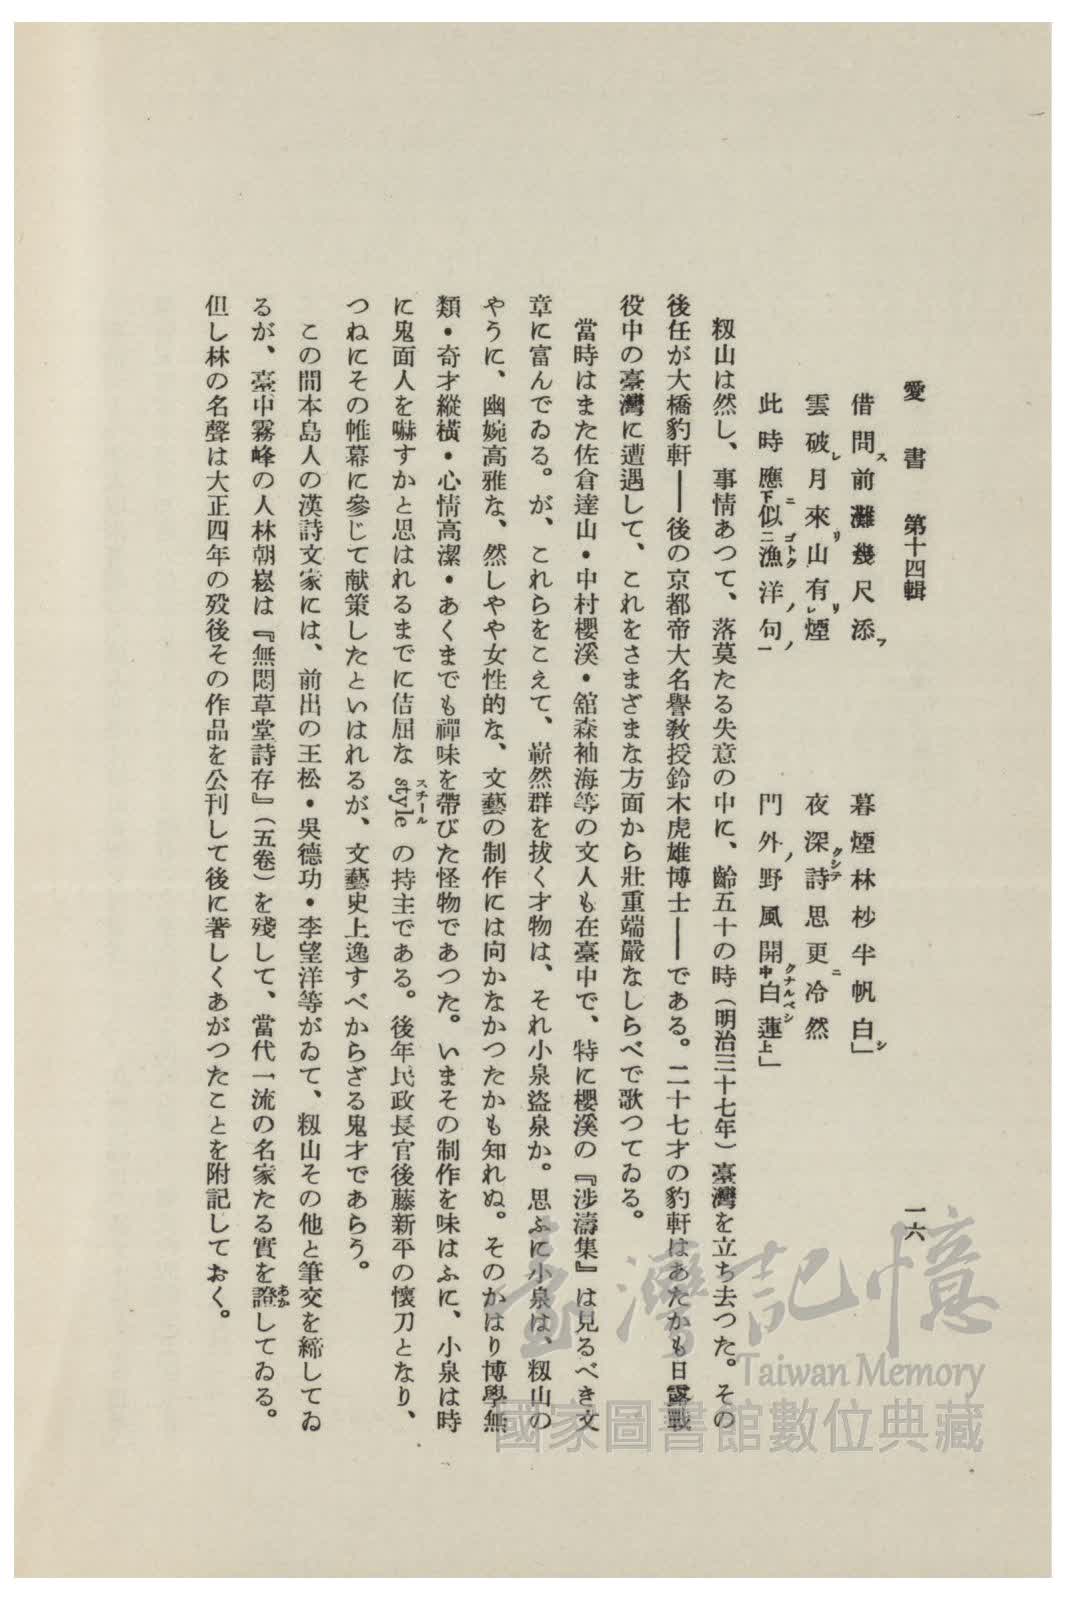 愛書 第十四輯 一六
借問前灘幾尺添 暮煙林杪半帆白」
雲破月來山有煙 夜深詩思更冷然
此時應似漁洋句 門外野風開白蓮」
籾山は然し、事情あつて、落莫たる失意の中に、齡五十の時（明治三十七年）臺灣を立ち去つた。その
後任が大橋豹軒――後の京都帝大名譽教授鈴木虎雄博士――である。二十七才の豹軒はあたかも日露戰
役中の臺灣に遭遇して、これをさまざまな方面から壯重端嚴なしらべで歌つてゐる。
當時はまた佐倉達山・中村櫻溪・舘森袖海等の文人も在臺中で、特に櫻溪の『涉濤集』は見るべき文
章に富んでゐる。が、これらをこえて、嶄然群を拔く才物は、それ小泉盜泉か。思ふに小泉は、籾山の
やうに、幽婉高雅な、然しやや女性的な、文藝の制作には向かなかつたかも知れぬ。そのかはり博學無
類・奇才縱橫・心情高潔・あくまでも禪味を帶びた怪物であつた。いまその制作を味はふに、小泉は時
に鬼面人を嚇すかと思はれるまでに佶屈な style スチールの持主である。後年民政長官後藤新平の懷刀となり、
つねにその帷幕に參じて献策したといはれるが、文藝史上逸すべからざる鬼才であらう。
この間本島人の漢詩文家には、前出の王松・吳德功・李望洋等がゐて、籾山その他と筆交を締してゐ
るが、臺中霧峰の人林朝崧は『無悶草堂詩存』（五卷）を殘して、當代一流の名家たる實を證あかしてゐる。
但し林の名聲は大正四年の歿後その作品を公刊して後に著しくあがつたことを附記しておく。
臺灣記憶
Taiwan Memory
國家圖書館數位典藏